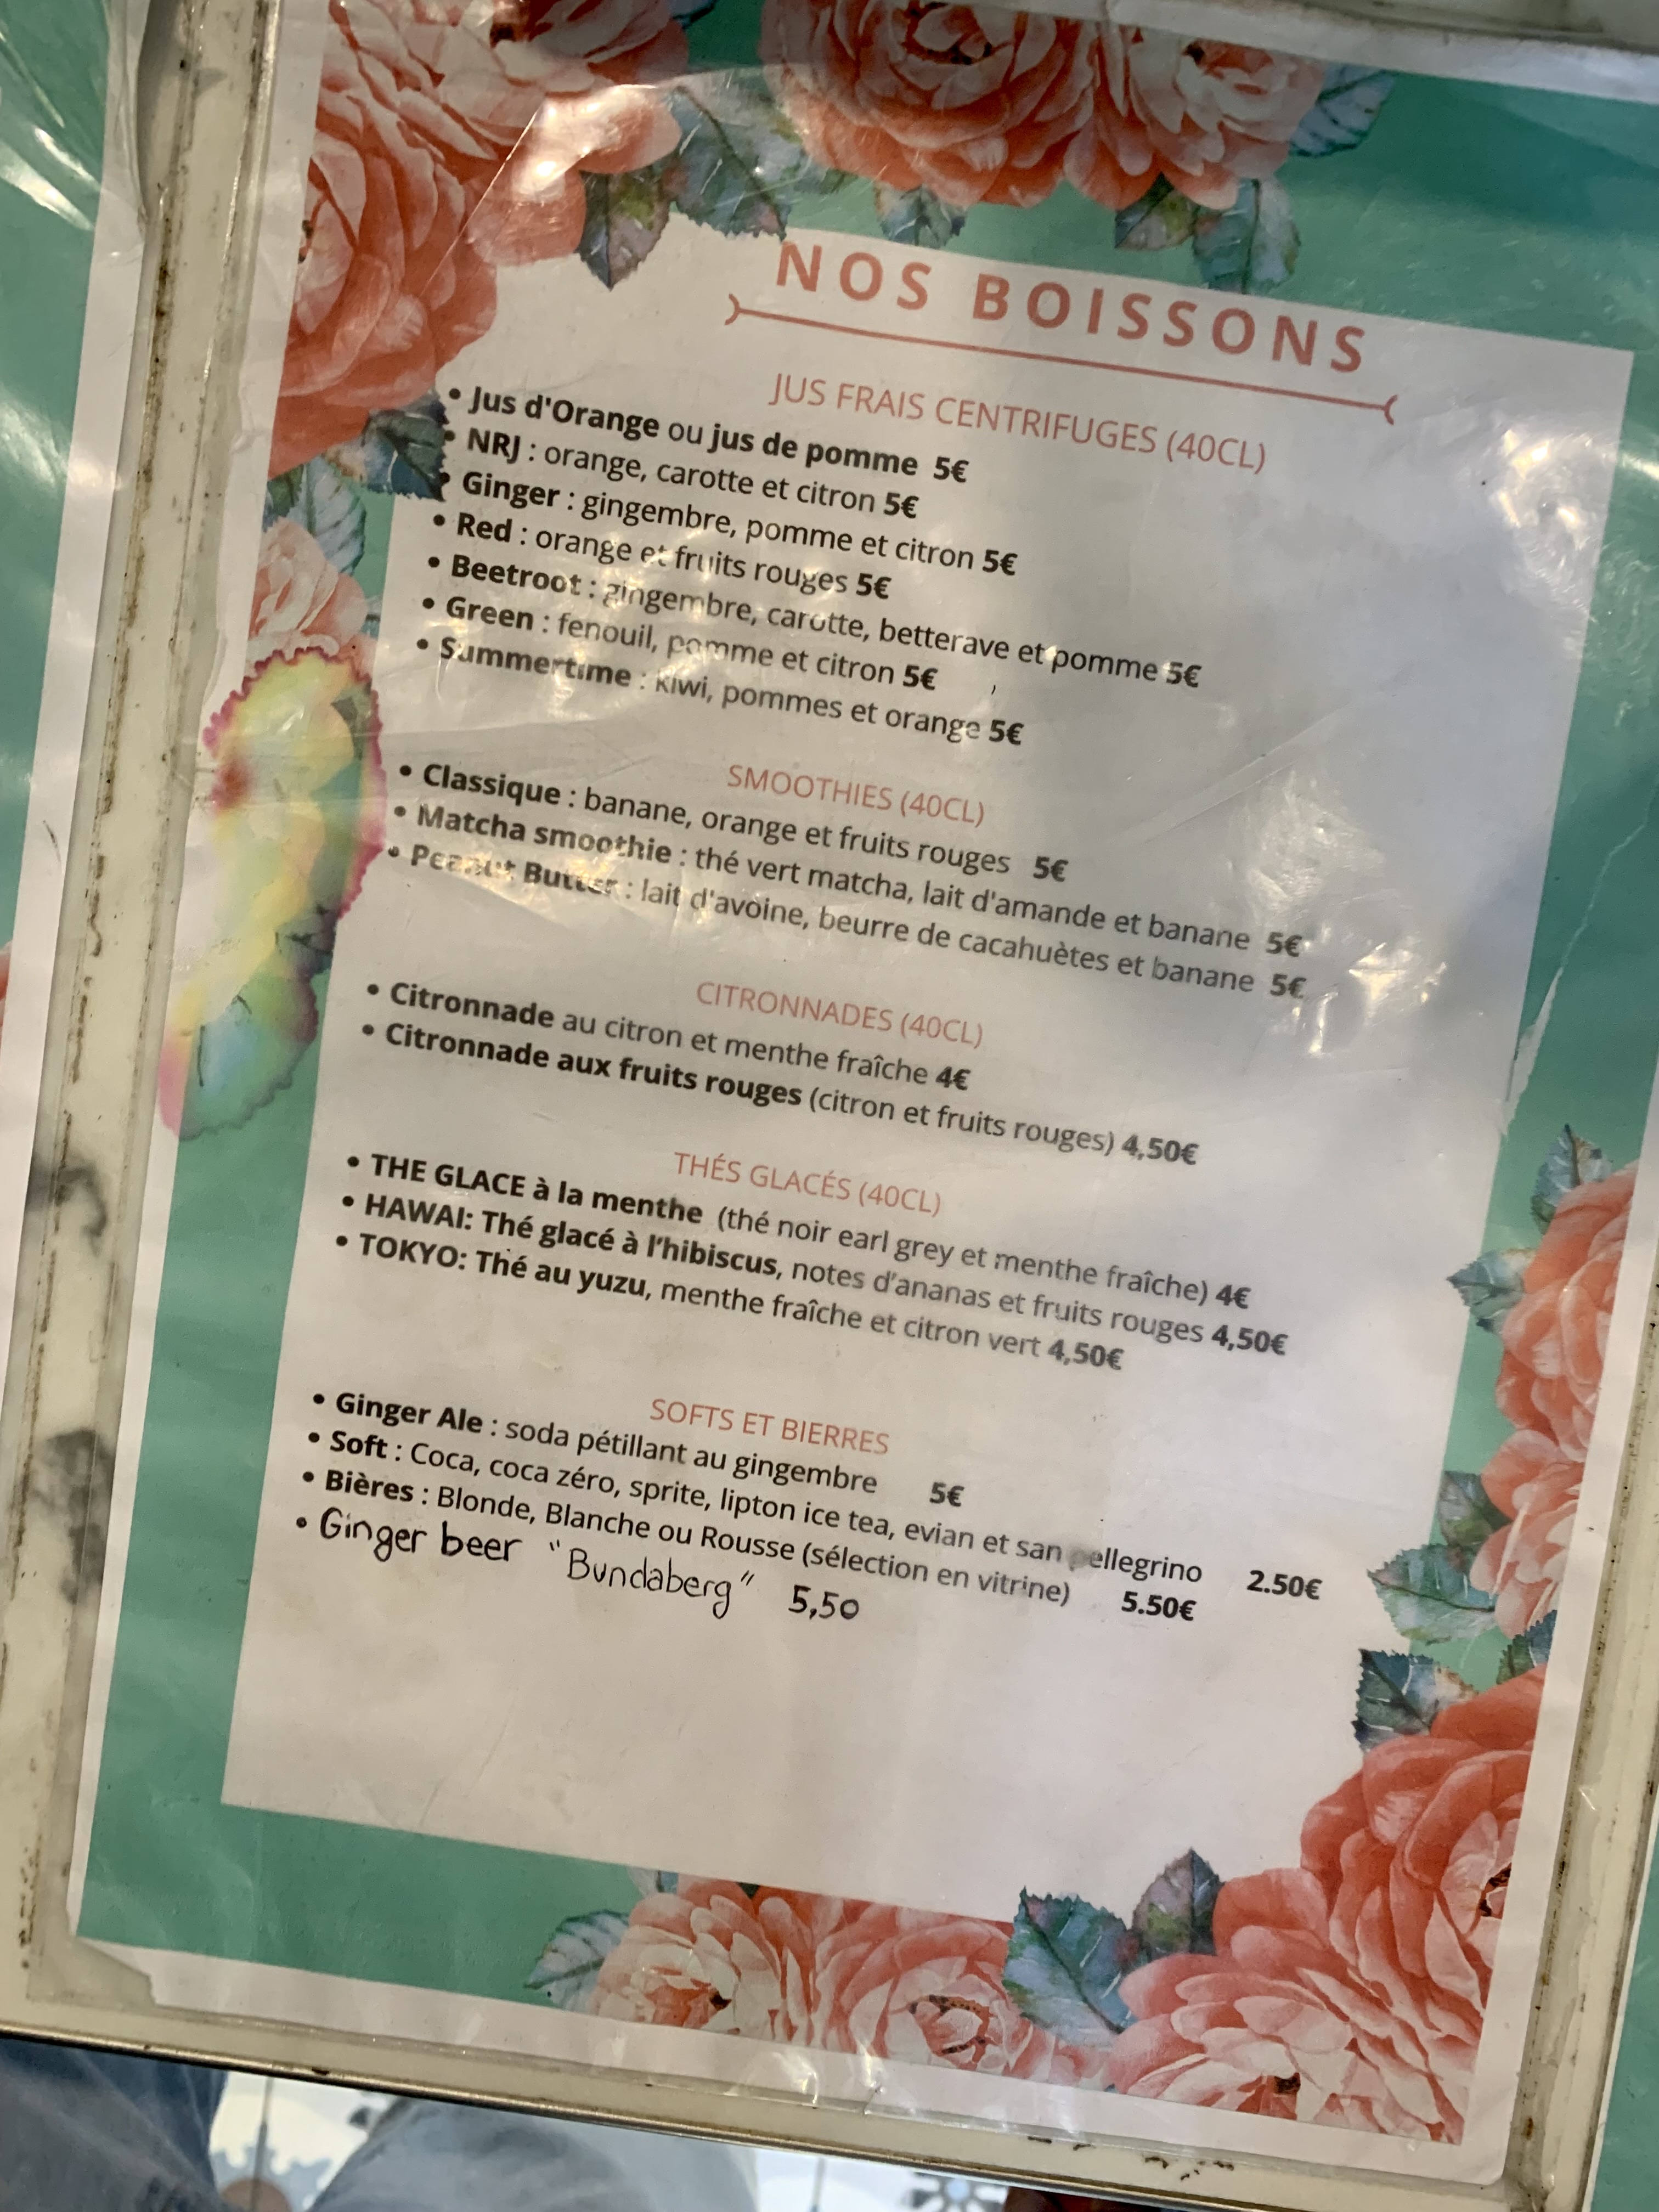 NOS BOISSONS
JUS FRAIS CENTRIFUGES (40CL)
• Jus d'Orange ou jus de pomme 5€
• NRJ : orange, carotte et citron 5€
• Ginger : gingembre, pomme et citron 5€
• Red : orange et fruits rouges 5€
• Beetroot : gingembre, carotte, betterave et pomme 5€
• Green : fenouil, pomme et citron 5€
• Summertime : kiwi, pommes et orange 5€
SMOOTHIES (40CL)
• Classique : banane, orange et fruits rouges 5€
• Matcha smoothie : thé vert matcha, lait d'amande et banane 5€
• Peanut Butter : lait d'avoine, beurre de cacahuètes et banane 5€
CITRONNADES (40CL)
• Citronnade au citron et menthe fraîche 4€
• Citronnade aux fruits rouges (citron et fruits rouges) 4,50€
THÉS GLACÉS (40CL)
• THE GLACE à la menthe (thé noir earl grey et menthe fraîche) 4€
• HAWAI: Thé glacé à l'hibiscus, notes d'ananas et fruits rouges 4,50€
• TOKYO: Thé au yuzu, menthe fraîche et citron vert 4,50€
SOFTS ET BIERRES
• Ginger Ale : soda pétillant au gingembre 5€
• Soft : Coca, coca zéro, sprite, lipton ice tea, evian et san pellegrino 2.50€
• Bières : Blonde, Blanche ou Rousse (sélection en vitrine) 5.50€
• Ginger beer "Bundaberg" 5,50